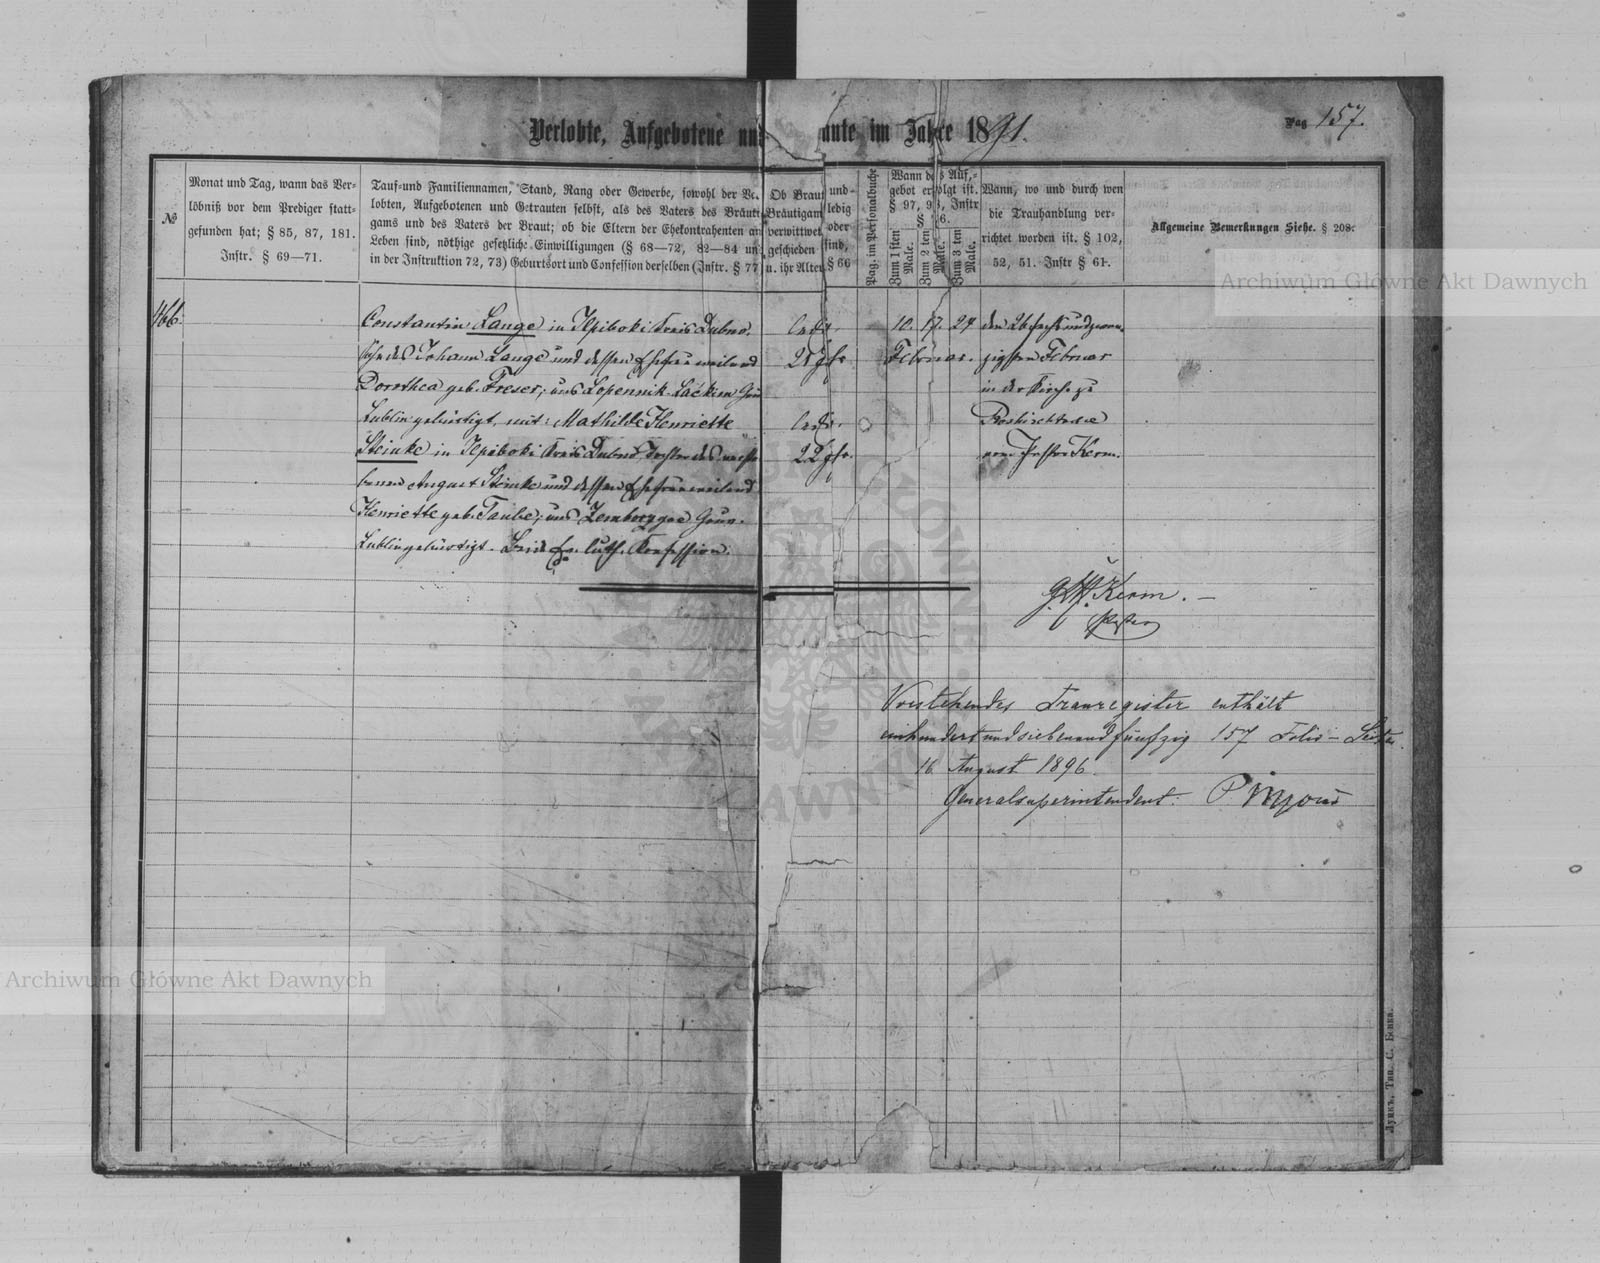 Verlobte, Aufgebotene un ute im Jahre 1891.
Pag 157.
№
Monat und Tag, wann das Ver-
löbniß vor dem Prediger statt-
gefunden hat; § 85, 87, 181.
Instr. § 69—71.
Tauf-und Familiennamen, Stand, Rang oder Gewerbe, sowohl der Ve
lobten, Aufgebotenen und Getrauten selbst, als des Vaters des Bräuti
gams und des Vaters der Braut; ob die Eltern der Ehekontrahenten am
Leben sind, nöthige gesetzliche Einwilligungen (§ 68—72, 82—84 un
in der Instruktion 72, 73) Geburtsort und Confession derselben (Instr. § 77)
Ob Braut und
Bräutigam ledig
verwittwet oder
geschieden sind,
u. ihr Alter § 66
Pag. im Personalbuche
Wann das Auf,-
gebot erfolgt ist.
§ 97, 98, Instr
Zum 1 sten Male.
Zum 2 ten Male.
Zum 3 ten Male.
Wann, wo und durch wen
die Trauhandlung ver-
richtet worden ist. § 102,
52, 51. Instr § 61.
Allgemeine Bemerkungen Siehe. § 208.
166.
Constantin Lange in Kreis Dubno.
Sohn des Johann Lange und dessen Ehefrau weiland
Dorothea geb. Freser; aus Lopennik Gou
Lublin gebürtigt, mit: Mathilde Henriette
Steinke in Kreis Dubno, Tochter des verstor
benen August Steinke und dessen Ehefrau weiland
Henriette geb. Taube; aus Gouv.
Lublin gebürtigt. Beide Ev. luth. Konfession.
ledig.
25 Jhr
ledig.
22 Jhr.
10. 17. 24
Februar.
den 26 sechsundzwan
zigsten Februar
in der Kirche zu
Roshischtsche
vom Pastor Kerm.
Kerm. —
Pastor
Vorstehendes Trauregister enthält
einhundertundsiebenundfünfzig 157 Folio-Seiten.
16. August 1896.
Generalsuperintendent:
Луцкъ, Тип. С. Бенка.
Archiwum Główne Akt Dawnych
Archiwum Główne Akt Dawnych